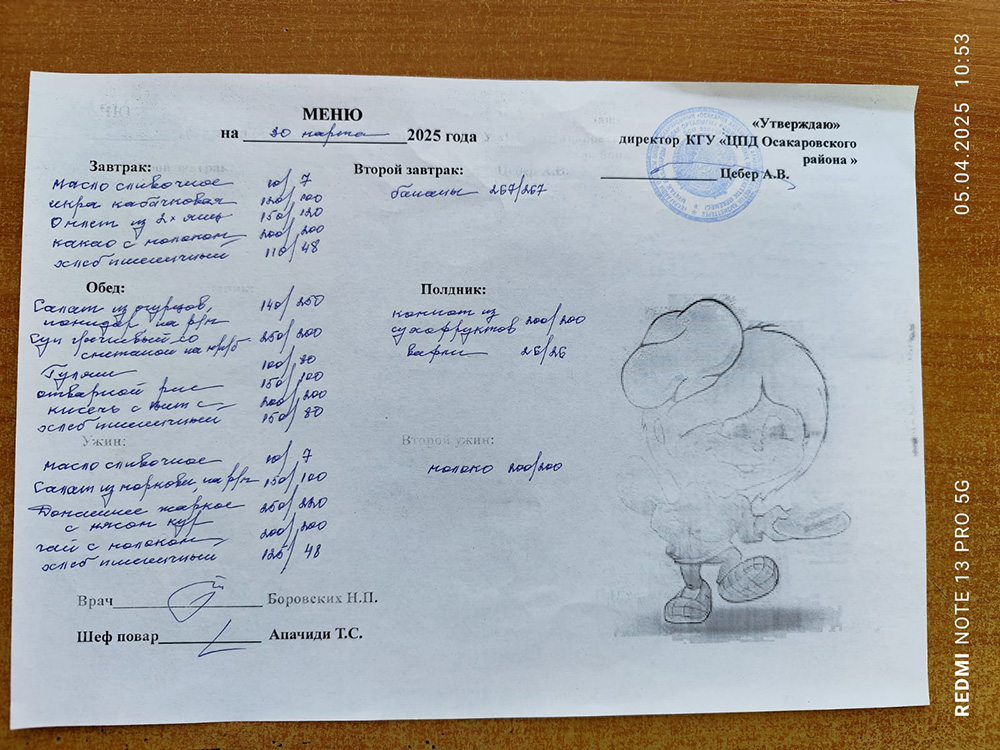 МЕНЮ
на 30 марта 2025 года
«Утверждаю»
директор КГУ «ЦПД Осакаровского
района »
Цебер А.В.
Завтрак:
масло сливочное 10/7
икра кабачковая 120/100
Омлет из 2х яиц 150/120
какао с молоком 200/200
хлеб пшеничный 110/48
Второй завтрак:
бананы 267/267
Обед:
Салат из огурцов, 140/250
помидар на р/м
Суп гречневый со 250/200
сметаной на кур/б
Гуляш 100/80
отварной рис 150/100
кисель с Вит с 200/200
хлеб пшеничный 150/80
Полдник:
компот из
сухофруктов 200/200
вафли 26/26
Ужин:
масло сливочное 10/7
Салат из моркови, на р/м 150/100
Домашнее жаркое 250/220
с мясом кур
чай с молоком 200/200
хлеб пшеничный 125/48
Второй ужин:
молоко 200/200
Врач Боровских Н.П.
Шеф повар Апачиди Т.С.
REDMI NOTE 13 PRO 5G 05.04.2025 10:53